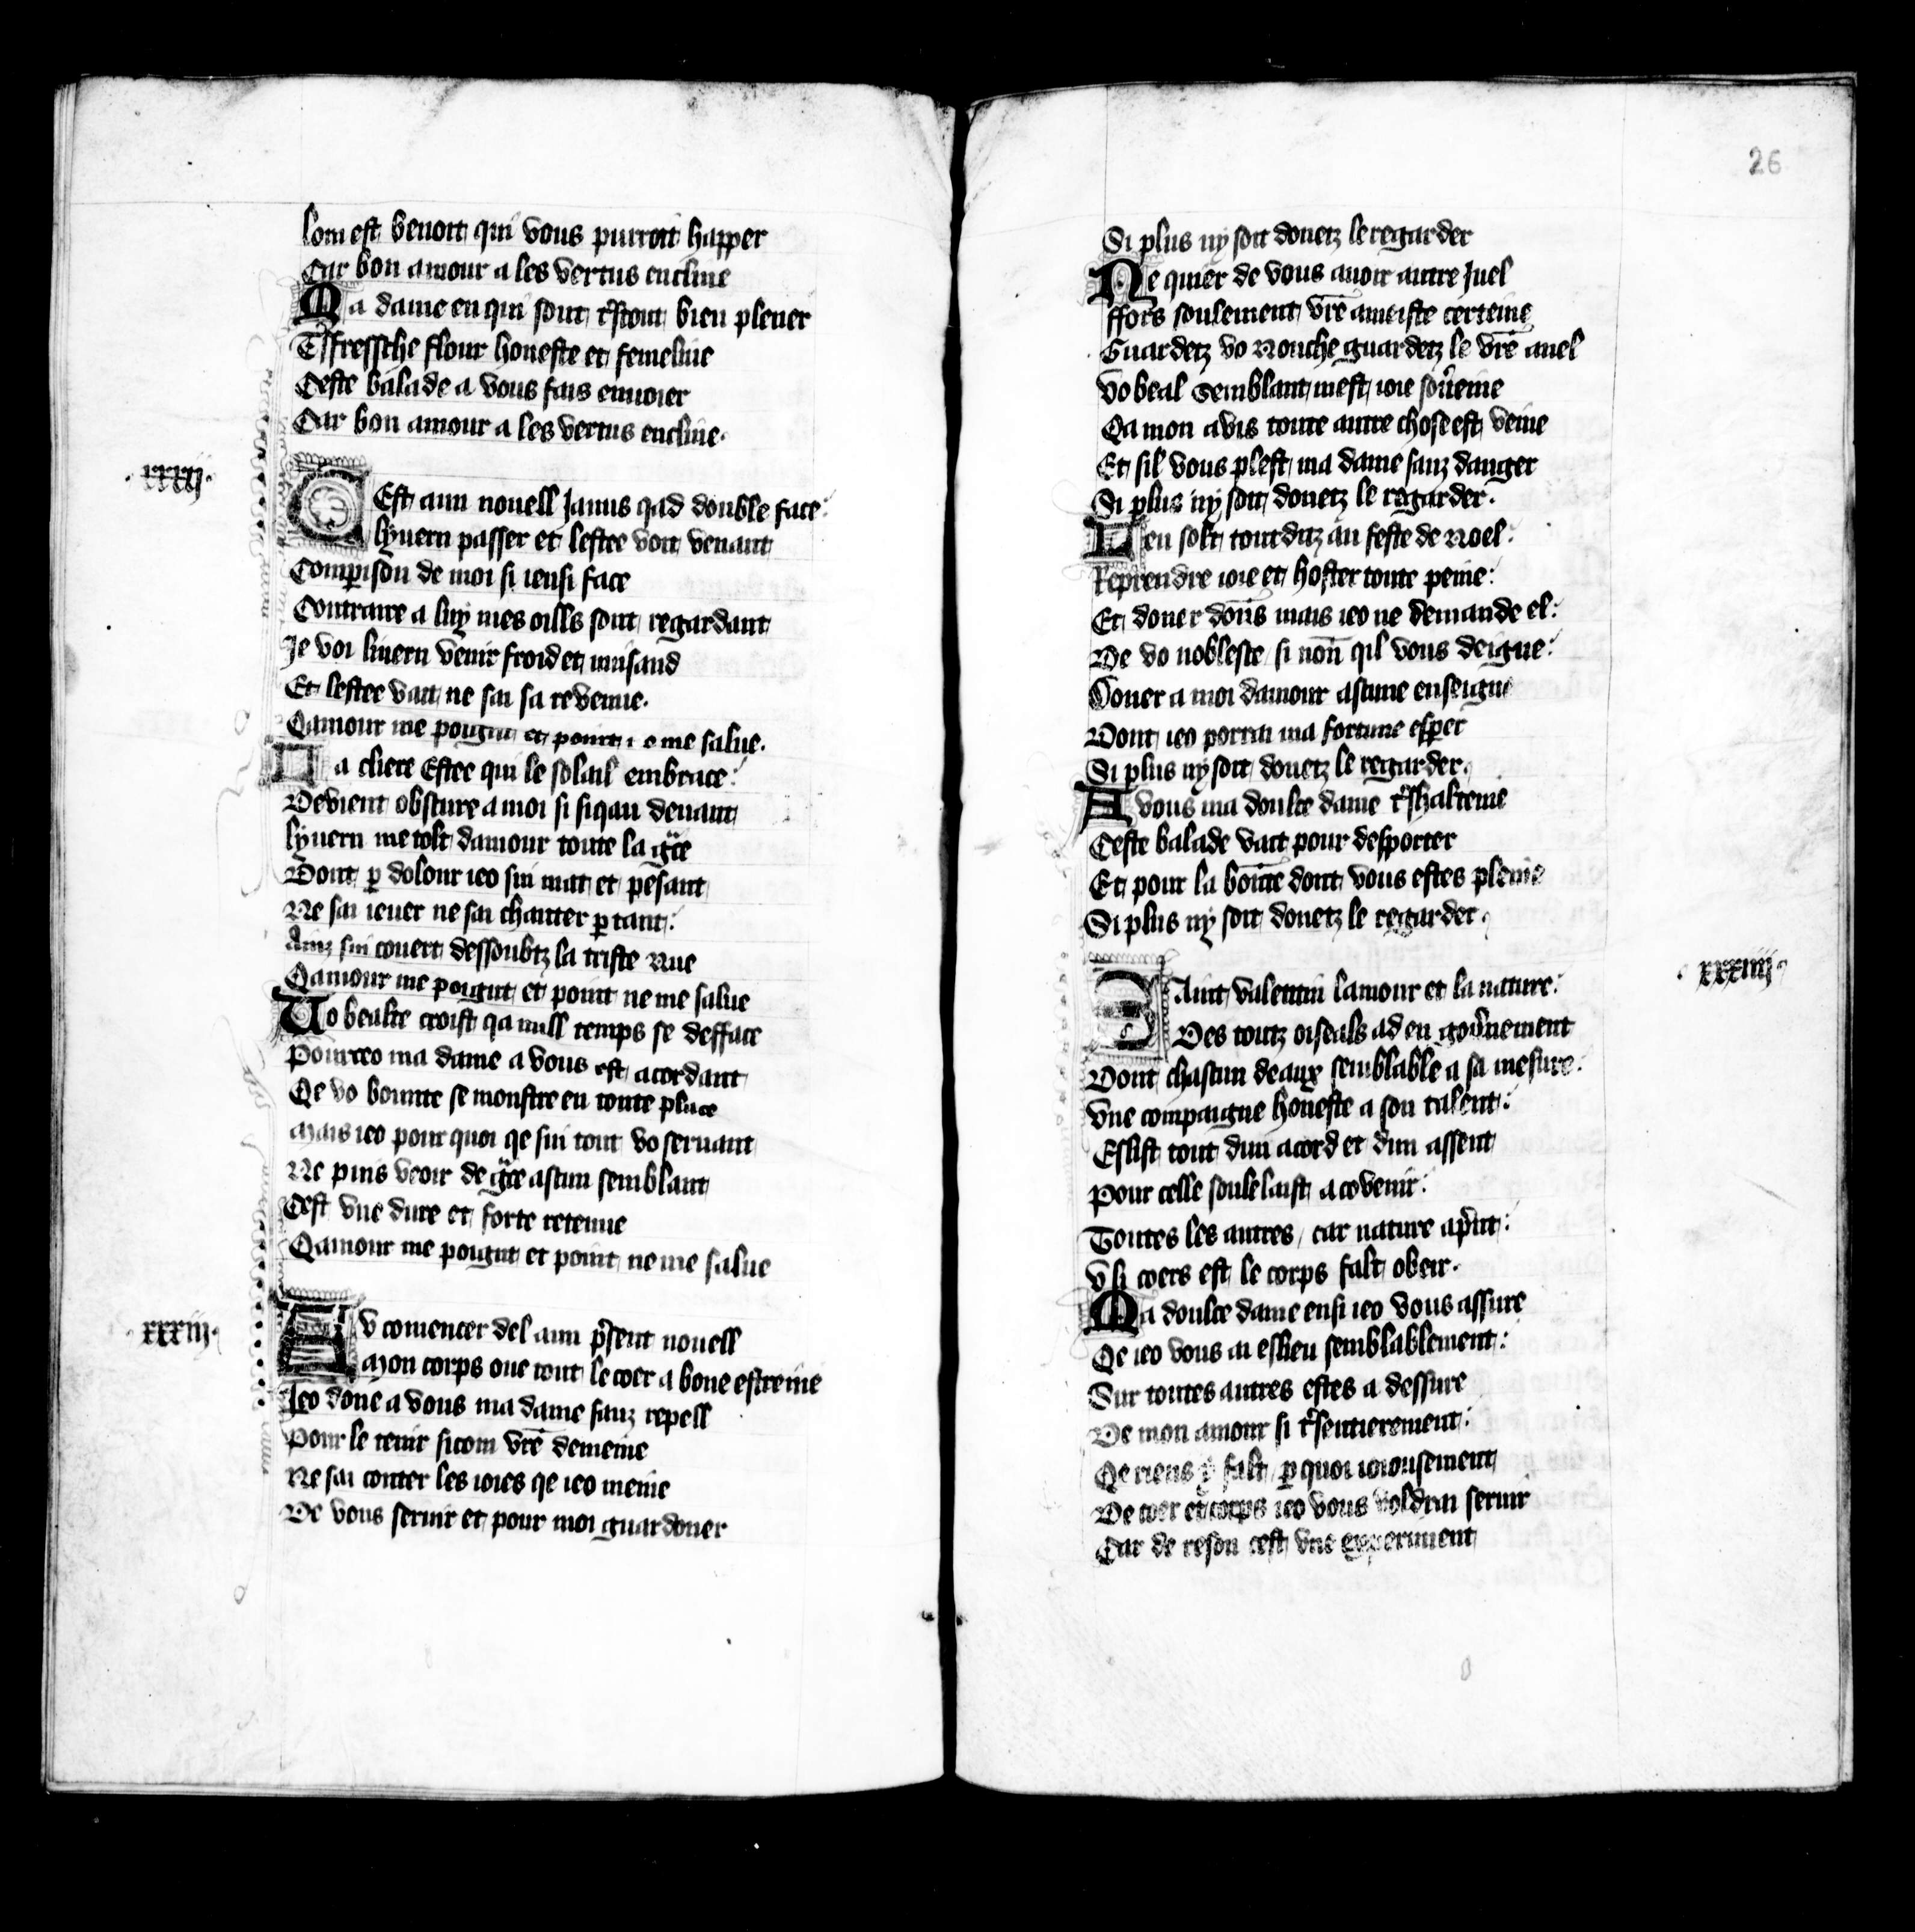 Lom est benoit qui vous purroit happer
Car bon amour a les vertus encline
Ma dame en qui sont trestout bien plener
Tresfressche flour honeste et femeline
Ceste balade a vous fais envoier
Car bon amour a les vertus encline.
.xxxij.
Cest ann novell Janus qad double face:
Lyvern passer et lestee voit venant
Comparison de moi si iensi face
Contraire a luy mes oills sont regardant
Je voi livern venir froid et nuisand
Et lestee vait ne sai sa revenue.
Qamour me poignt et point ne me salue.
La cliere Estee qui le solail embrace:
Devient obscure a moi si siqau devant
Lyvern me tolt damour toute la grace
Dont par dolour ieo sui mat et pesant
Ne sai iuer ne sai chanter par tant:
Ainz sui covert dessoubtz la triste Nue
Qamour me poignt et point ne me salue
Vo bealte croist qa null temps se defface
Pourceo ma dame a vous est acordant
Qe vo bounte se monstre en toute place
Mais ieo pour quoi qe sui tout vo servant
Ne puis veoir de grace ascun semblant
Cest une dure et forte retenue
Qamour me poignt et point ne me salue
.xxxiij.
Au comencer del ann present novell
Mon corps ove tout le coer a bone estreine
Jeo done a vous ma dame sanz repell
Pour le tenir sicom vostre demeine
Ne sai conter les ioies qe ieo meine
De vous servir et pour moi guardoner
26
Si plus ny soit donetz le regarder
Ne quier de vous avoir autre Juel
ffors soulement vostre amistee certeine
Guardetz vo Nouche guardetz le vostre anel
Vo beal semblant mest ioie sovereine
Qa mon avis toute autre chose est veine
Et sil vous plest ma dame sanz danger
Si plus ny soit donetz le regarder.
Len solt tout ditz au feste de Noel:
Reprendre ioie et hoster toute peine:
Et doner douns mais ieo ne demande el:
De vo noblesce si noun qil vous deigne:
Doner a moi damour ascune enseigne
Dont ieo porrai ma fortune esperer
Si plus ny soit donetz le regarder.
A vous ma doulce dame treshalteine
Ceste balade vait pour desporter
Et pour la bounte dont vous estes pleine
Si plus ny soit donetz le regarder.
.xxxiiij.
Saint valentin lamour et la nature:
Des toutz oiseals ad en governement
Dont chascun deaux semblable a sa mesure:
Une compaigne honeste a son talent:
Eslist tout dun acord et dun assent
Pour celle soule laist a covenir:
Toutes les autres / car nature aprent:
U li coers est le corps falt obeir.
Ma doulce dame ensi ieo vous assure
Qe ieo vous ai eslieu semblablement:
Sur toutes autres estes a dessure
De mon amour si tresentierement:
Qe riens y falt par quoi ioiousement
De coer et corps ieo vous voldrai servir
Car de reson cest une experiment